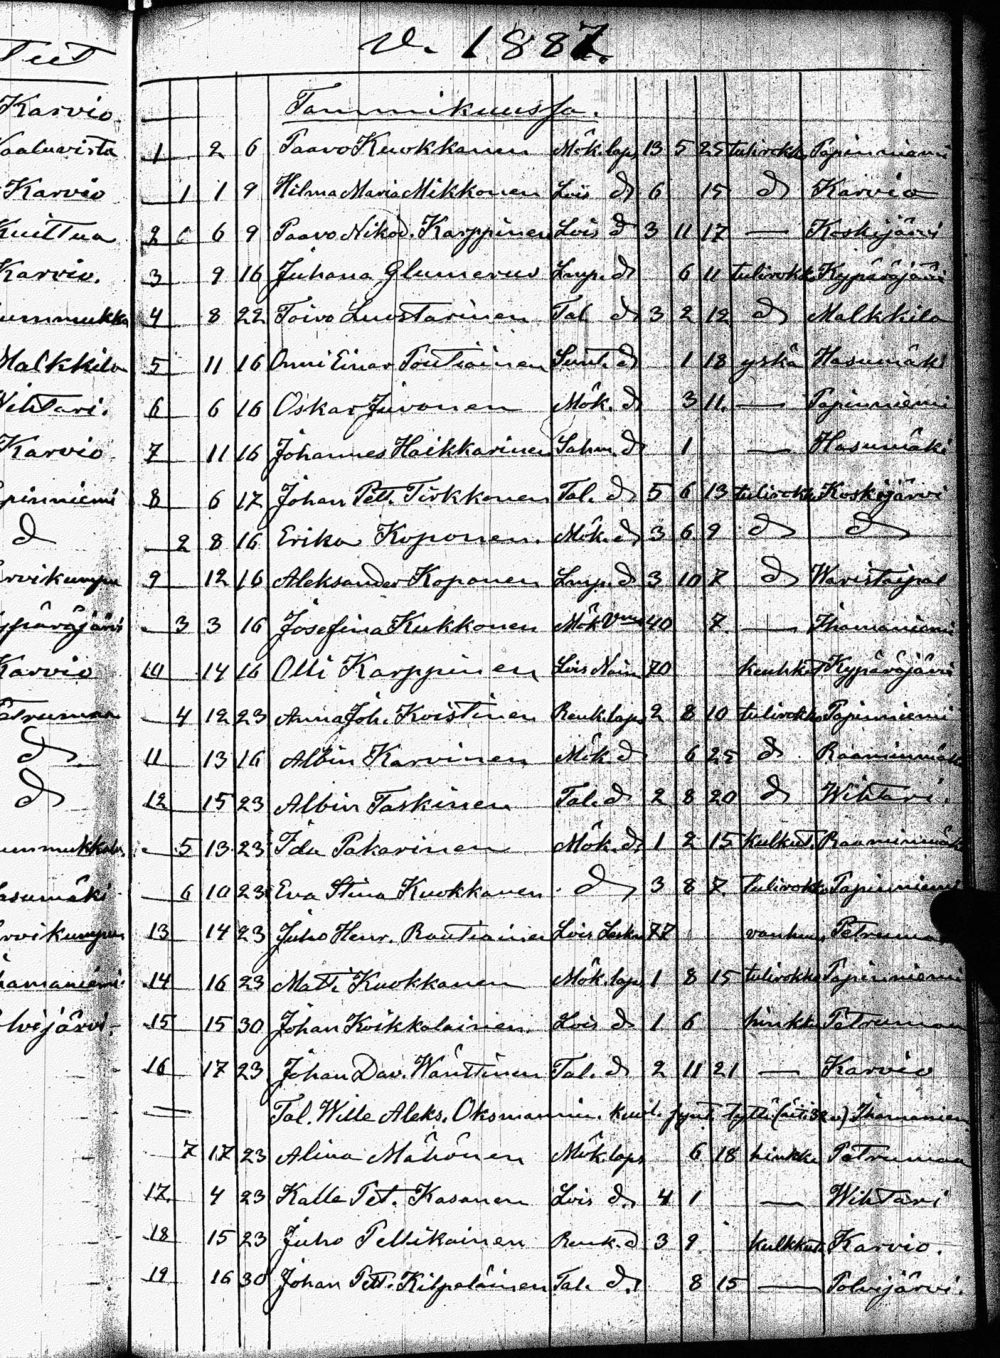 Teet
Karvio
Karvio
Kuittua
Karvio.
Malkkila
Wihtari.
Karvio
d
Karvio
Petrumaa
d
d
V. 1887.
Tammikuussa.
1 2 6 Paavo Kuokkanen Mök. laps 13 5 25 tulirokko Papinniemi
1 1 9 Hilma Maria Mikkonen Lois d 6 15 d Karvio
2 6 9 Paavo Nikod. Karppinen Lois d 3 11 17 — Koskijärvi
3 9 16 Juhana Glumerus Lmp. d 6 11 tulirokko Kypäräjärvi
4 8 22 Toivo Luostarinen Tal d 3 2 12 d Malkkila
5 11 16 Onni Einar Poutiainen d 1 18 yskä Hasumäki
6 6 16 Oskar Juvonen Mök. d 3 11. — Papinniemi
7 11 16 Johannes Haikkarinen d 1 — Hasumäki
8 6 17 Johan Pett. Tirkkonen Tal. d 5 6 13 tulirokko Koskijärvi
2 8 16 Erika Koponen. Mök. d 3 6 9 d d
9 12 16 Aleksander Koponen Lmp. d 3 10 7 d Waristaipal
3 3 16 Josefina Kukkonen Mök 40 7. — Ihamaniemi
10 14 16 Olli Karppinen Lois Nain 70 keuhkot Kypäräjärvi
4 12 23 Anna Joh. Koistinen Renk. laps 2 8 10 tulirokko Papinniemi
11 13 16 Albin Karvinen Mök. d 6 25 d Raaminmäki
12 15 23 Albin Taskinen Tal. d 2 8 20 d Wihtari.
5 13 23 Ida Pakarinen Mök. d 1 2 15 kulkut. Raaminmäki
6 10 23 Eva Stina Kuokkanen d 3 8 7 tulirokko Papinniemi
13 14 23 Juho Henr. Rautiainen Lois Leski 77 vanhuus Petrumaa
14 16 23 Matti Kuokkanen Mök. laps 1 8 15 tulirokko Papinniemi
15 15 30 Johan Koikkalainen. Lois d 1 6 hinkku Petrumaa
16 17 23 Johan Dav. Wänttinen Tal. d 2 11 21 — Karvio
Tal. Wille Aleks. Oksmannin. kuol. synt. tyttö (äiti 32 v) Ihamaniem
7 17 23 Alina Mähönen Mök laps 6 18 hinkku Petrumaa
17. 4 23 Kalle Pet. Kasanen Lois d. 4 1 — Wihtari
18 15 23 Juho Pellikainen Renk. d 3 9. kulkut. Karvio.
19 16 30 Johan Pett. Kilpeläinen Tal. d. 8 15 — Polvijärvi.